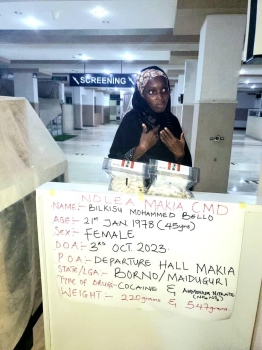 SCREENING
NDLEA MAKIA CMD
NAME:- BILKISU MOHAMMED BELLO
AGE:- 21ST JAN 1978 (45yrs)
SEX:- FEMALE
D.O.A:- 3RD OCT. 2023.
P.O.A:- DEPARTURE HALL MAKIA
STATE/LGA:- BORNO/MAIDUGURI
TYPE OF DRUG:- COCAINE & AMMONIUM NITRATE
WEIGHT - 220grams & 547grams